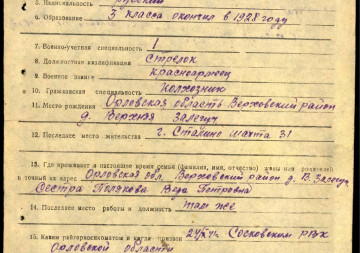 5. Национальность русский
6. Образование 3 класса окончил в 1928 году
7. Военно-учетная специальность 1
8. Должностная квалификация Стрелок
9. Военное звание красноармеец
10. Гражданская специальность Колхозник
11. Место рождения Орловская область Верховский район
д. Верхняя Залегощ
12. Последнее место жительства г. Сталино шахта 31
13. Где проживает в настоящее время семья (фамилия, имя, отчество) жены или родителей
и точный их адрес Орловская обл. Верховский район д. В. Залегощ
Сестра Полякова Вера Петровна
14. Последнее место работы и должность там же
15. Каким райгорвоенкоматом и когда призван Сосковским РВК
Орловской области